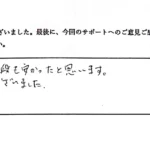 ざいました。最後に、今回のサポートへのご意見ご感
い。
段も安かったと思います。
ざいました。